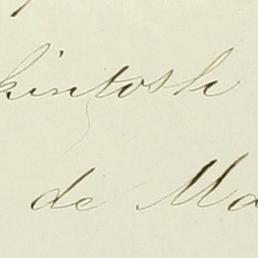 kintosh
de Ma